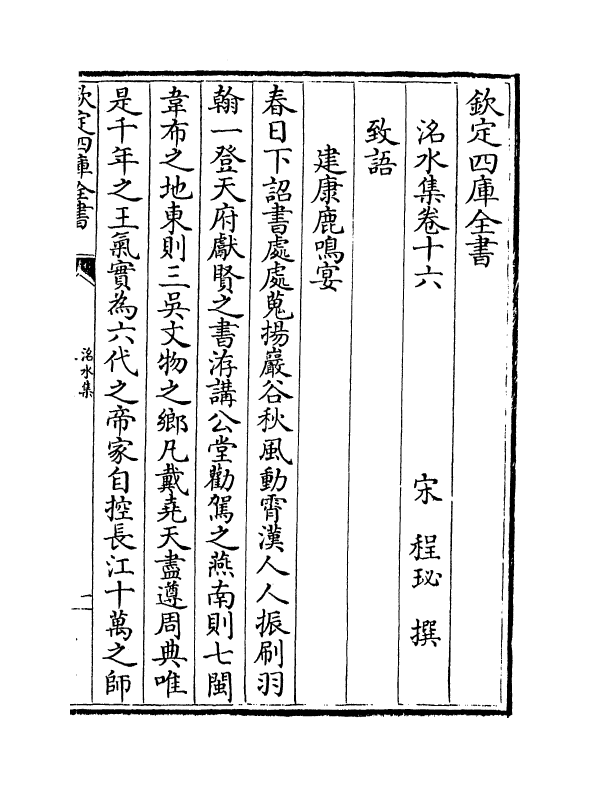 欽定四庫全書
洺水集卷十六
宋 程珌 撰
致語
建康鹿鳴宴
春日下詔書處處蒐揚巖谷秋風動霄漢人人振刷羽
翰一登天府獻賢之書洊講公堂勸駕之燕南則七閩
韋布之地東則三吳文物之鄉凡戴堯天盡遵周典唯
是千年之王氣實為六代之帝家自控長江十萬之師
欽定四庫全書
洺水集
一